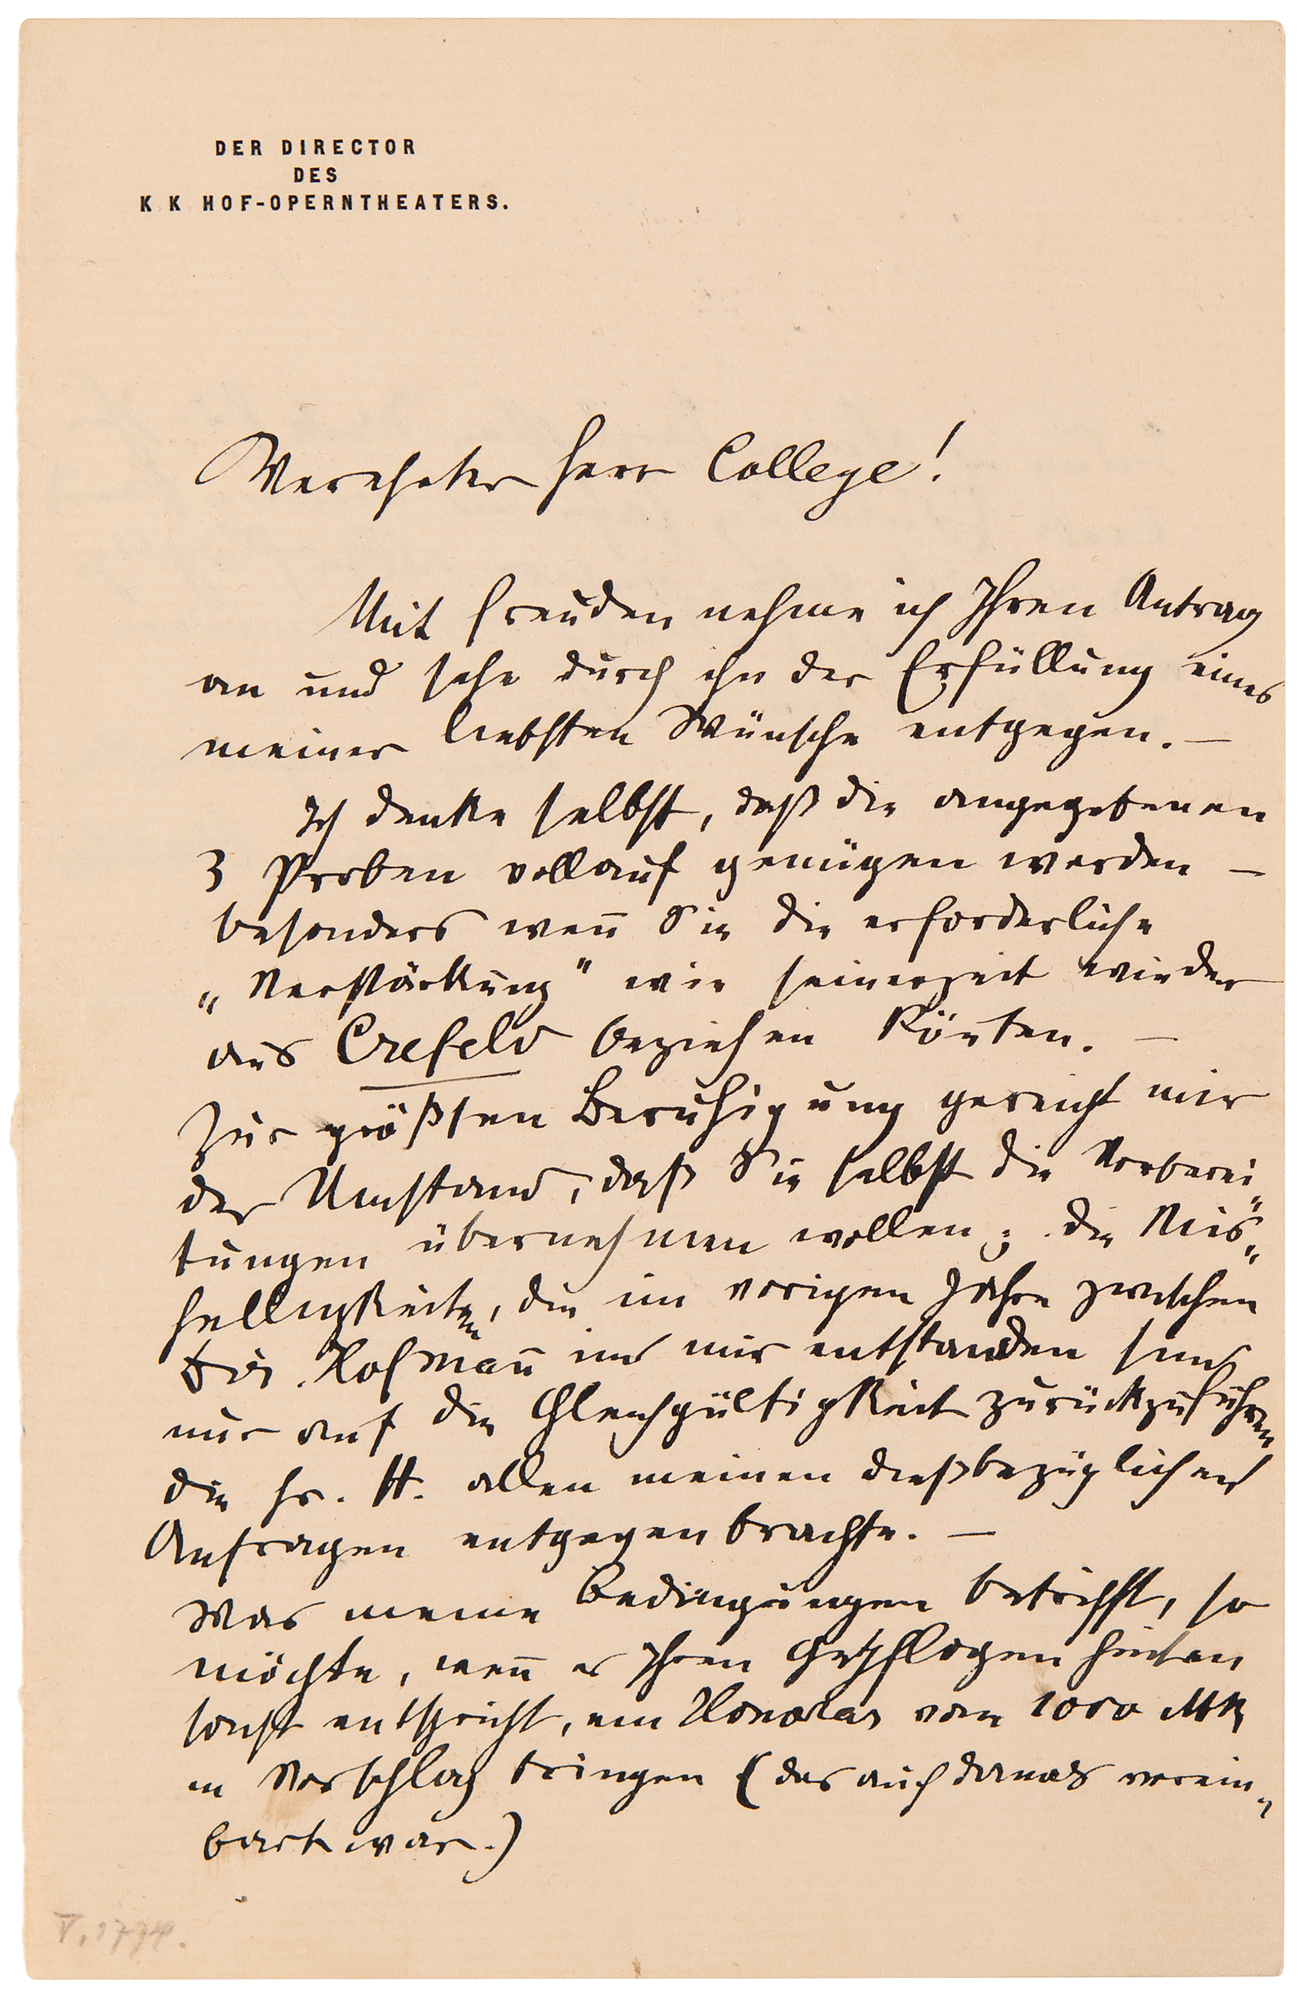 DER DIRECTOR
DES
K K HOF-OPERNTHEATERS.
Verehrter Herr College!
Mit Freuden nehme ich Ihren Antrag
an und sehe durch ihn der Erfüllung eines
meiner liebsten Wünsche entgegen. —
Ich denke selbst, daß die angegebenen
3 Proben vollauf genügen werden —
besonders wen̄ Sie die erforderliche
„Verstärkung" wie seinerzeit wieder
aus Crefeld beziehen könten. —
Zur größten Beruhigung gereicht mir
der Umstand, daß Sie selbst die Vorberei"
tungen übernehmen wollen; die Mis"
helligkeiten, die im vorigen Jahre zwischen
Dir. Hofman̄ und mir entstanden sind
nur auf die Gleichgültigkeit zurückzuführen
die Hr. H. allen meinen dießbezüglichen
Anfragen entgegenbrachte. —
Was meine Bedingungen betrifft, so
möchte, wen̄ es Ihren Gepflogenheiten
sonst entspricht, ein Honorar von 1000 Mk
in Vorschlag bringen (das auch damals verein"
bart war.)
V. 1774.